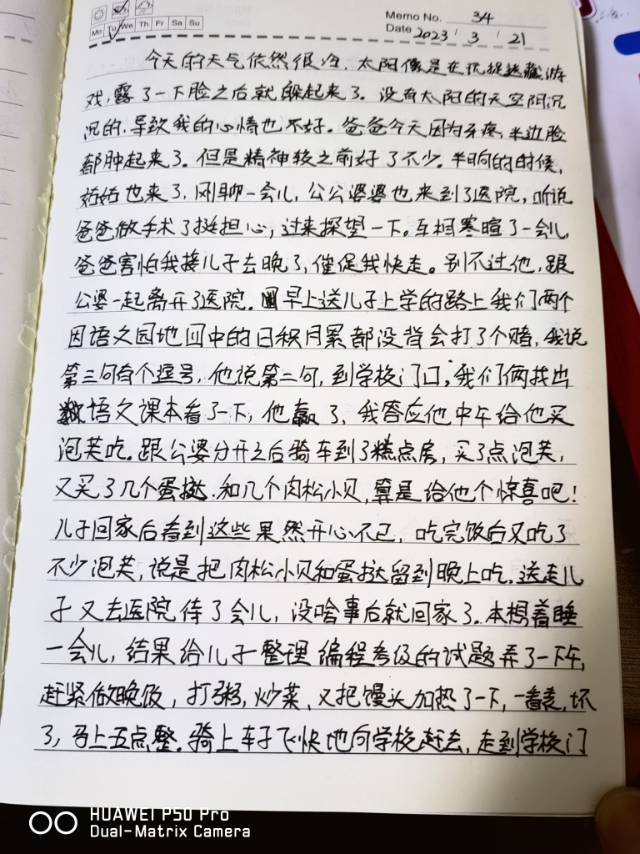 Memo No. 34
Mo Tu We Th Fr Sa Su
Date 2023 / 3 / 21
今天的天气依然很冷，太阳像是在玩捉迷藏游
戏，露了一下脸之后就躲起来了。没有太阳的天空阴沉
沉的，导致我的心情也不好。爸爸今天因为牙疼，半边脸
都肿起来了。但是精神较之前好了不少。半晌的时候，
姑姑也来了，刚聊一会儿，公公婆婆也来到了医院，听说
爸爸做手术了挺担心，过来探望一下。互相寒暄了一会儿，
爸爸害怕我接儿子去晚了，催促我快走。别不过他，跟
公婆一起离开了医院。早上送儿子上学的路上我们两个
因语文园地四中的日积月累都没背会打了个赌，我说
第三句有个逗号，他说第二句，到学校门口，我们俩找出
语文课本看了一下，他赢了，我答应他中午给他买
泡芙吃。跟公婆分开之后骑车到了糕点房，买了点泡芙，
又买了几个蛋挞，和几个肉松小贝，算是给他个惊喜吧！
儿子回家后看到这些果然开心不已，吃完饭后又吃了
不少泡芙，说是把肉松小贝和蛋挞留到晚上吃。送走儿
子又去医院待了会儿，没啥事后就回家了。本想着睡
一会儿，结果给儿子整理编程考级的试题弄了一下午，
赶紧做晚饭，打粥，炒菜，又把馒头加热了一下，一看表，坏
了，马上五点整。骑上车子飞快地向学校赶去，走到学校门
HUAWEI P50 Pro
Dual-Matrix Camera